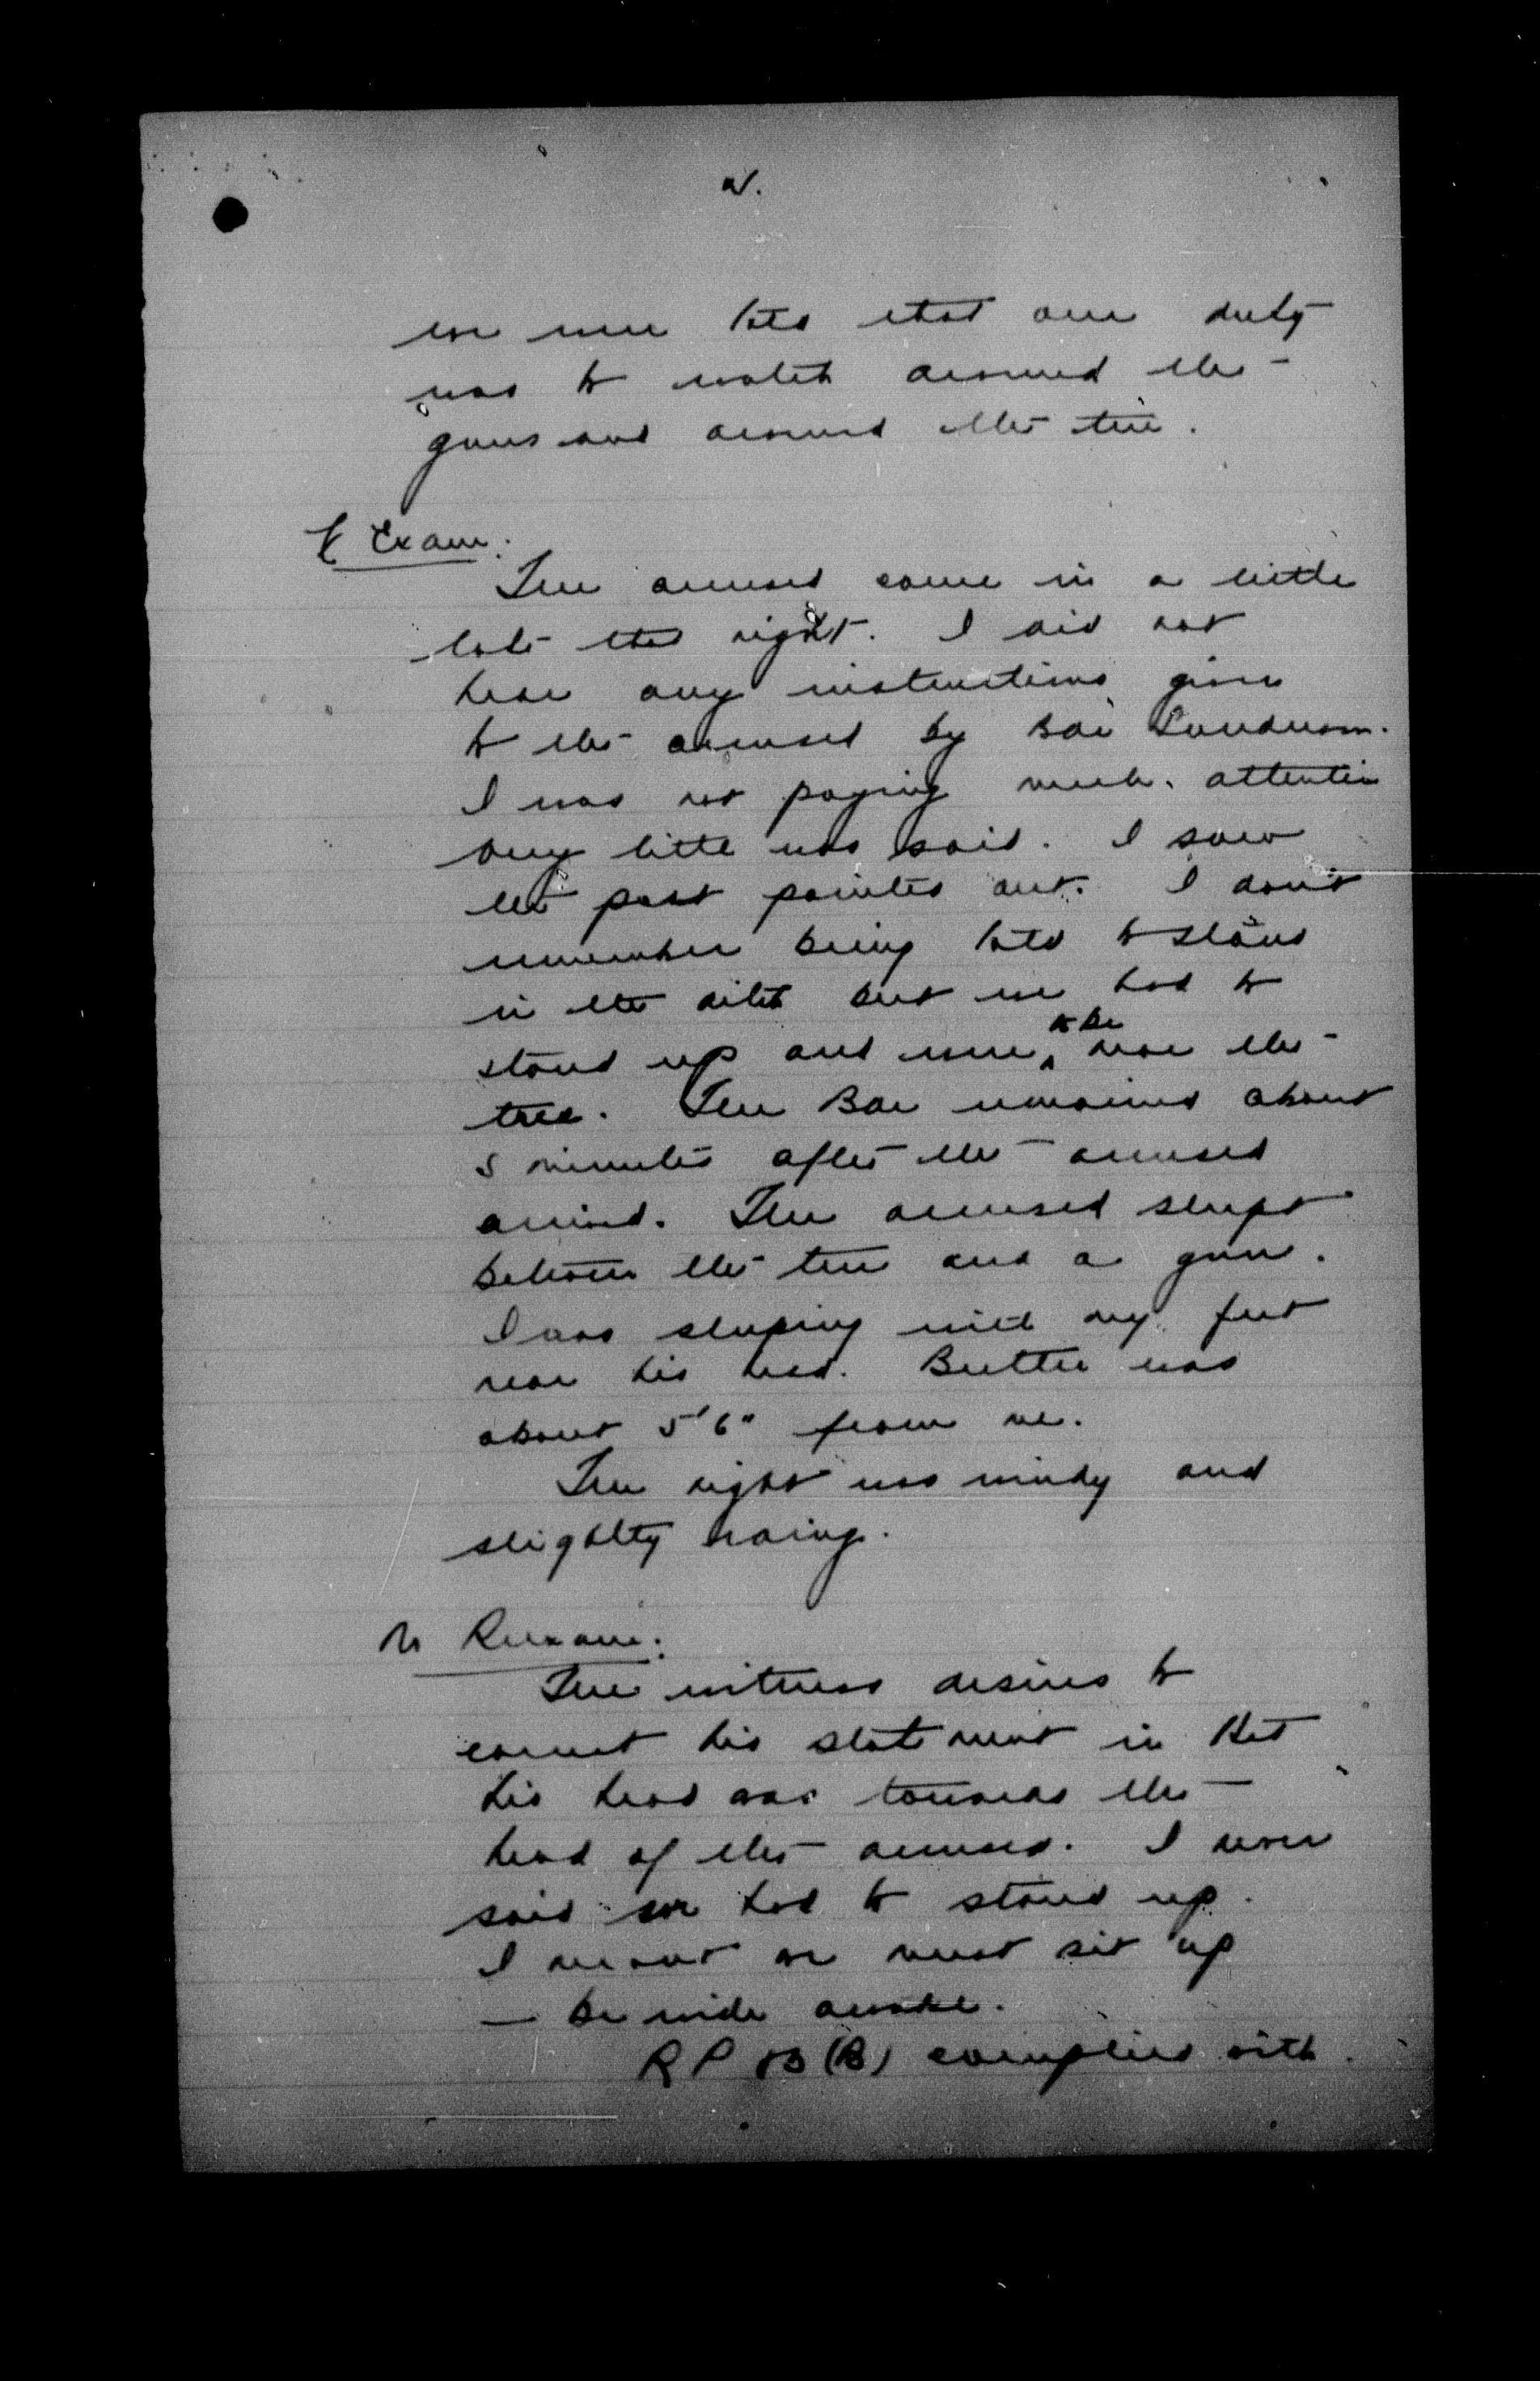 2.
we were told that our duty
was to watch around the
guns and around the tree.
X Exam.
The accused came in a little
late that night. I did not
hear any instructions given
to the accused by Bdr
I was not paying much attention
very little was said. I saw
the post pointed out. I don't
remember being told to stand
in the ditch but we had to
to be
stand up and were near the
tree. The Bdr remained about
5 minutes after the accused
arrived. The accused slept
between the tree and a gun.
I was sleeping with my feet
near his head. Butler was
about 5'6" from me.
The night was windy and
slightly raining.
No Reexam.
The witness desires to
correct his statement in that
his head was towards the
head of the accused. I never
said we had to stand up.
I meant we must sit up
— be wide awake.
RP 83 (B) complied with.